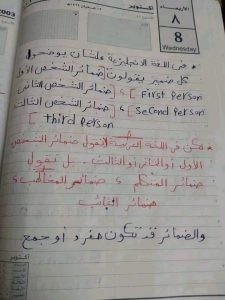 أكتوبر
الأربعاء
٨
8
Wednesday
2003
* فى اللغة الانجليزية علشان يوضحوا
كل ضمير يقولون [ ضمائر الشخص الأول
First Person ] و [ ضمائر الشخص الثانى
Second Person ] و [ ضمائر الشخص الثالث
third Person ]
لكن فى اللغة العربية لانقول ضمائر الشخص
الأول أو الثانى أو الثالث . بل نقول
ضمائر المتكلم و ضمائر المخاطب و
ضمائر الغائب
والضمائر قد تكون مفرد أو جمع
أكتوبر